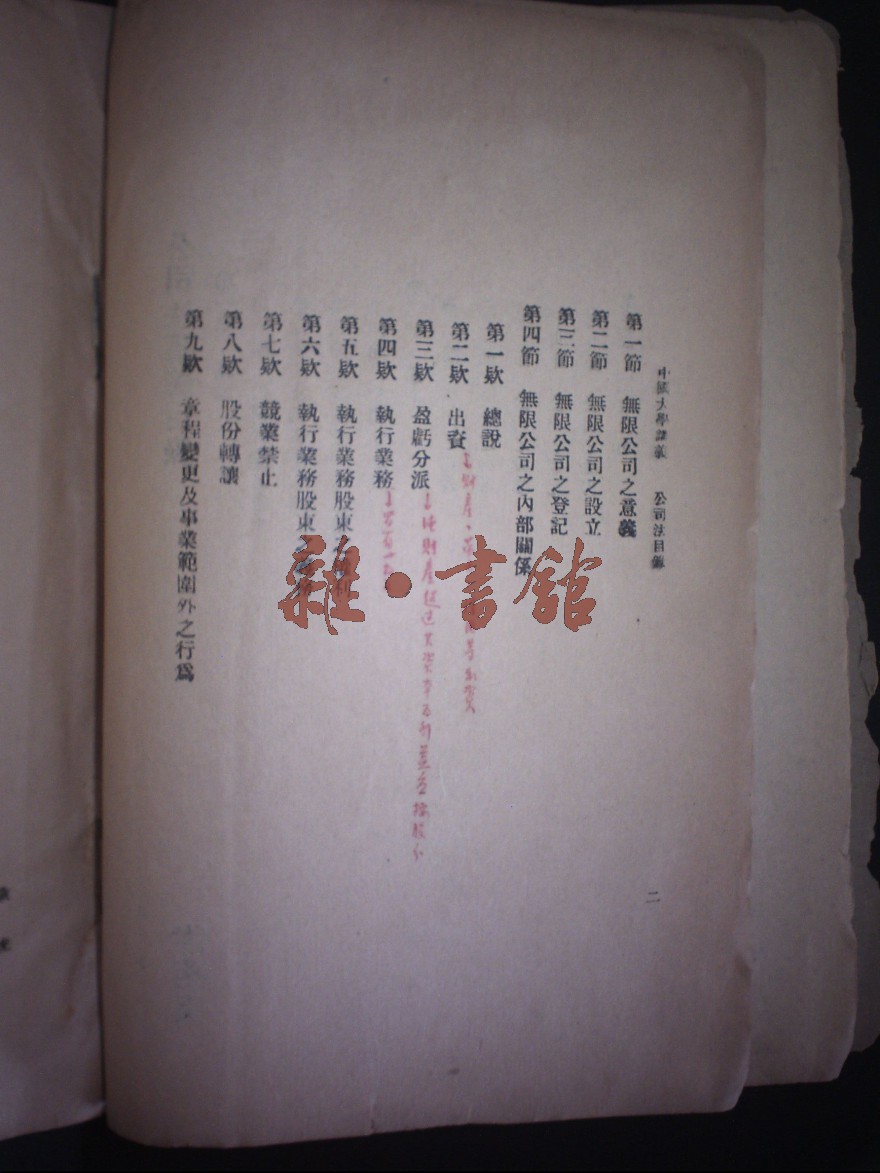 中國大學講義 公司法目錄
二
第一節 無限公司之意義
第二節 無限公司之設立
第三節 無限公司之登記
第四節 無限公司之內部關係
第一欵 總說
第二欵 出資
財產
第三欵 盈虧分派
財產超過其資本
第四欵 執行業務
第五欵 執行業務股東之權利
第六欵 執行業務股東之義務
第七欵 競業禁止
第八欵 股份轉讓
第九欵 章程變更及事業範圍外之行爲
雜·書館